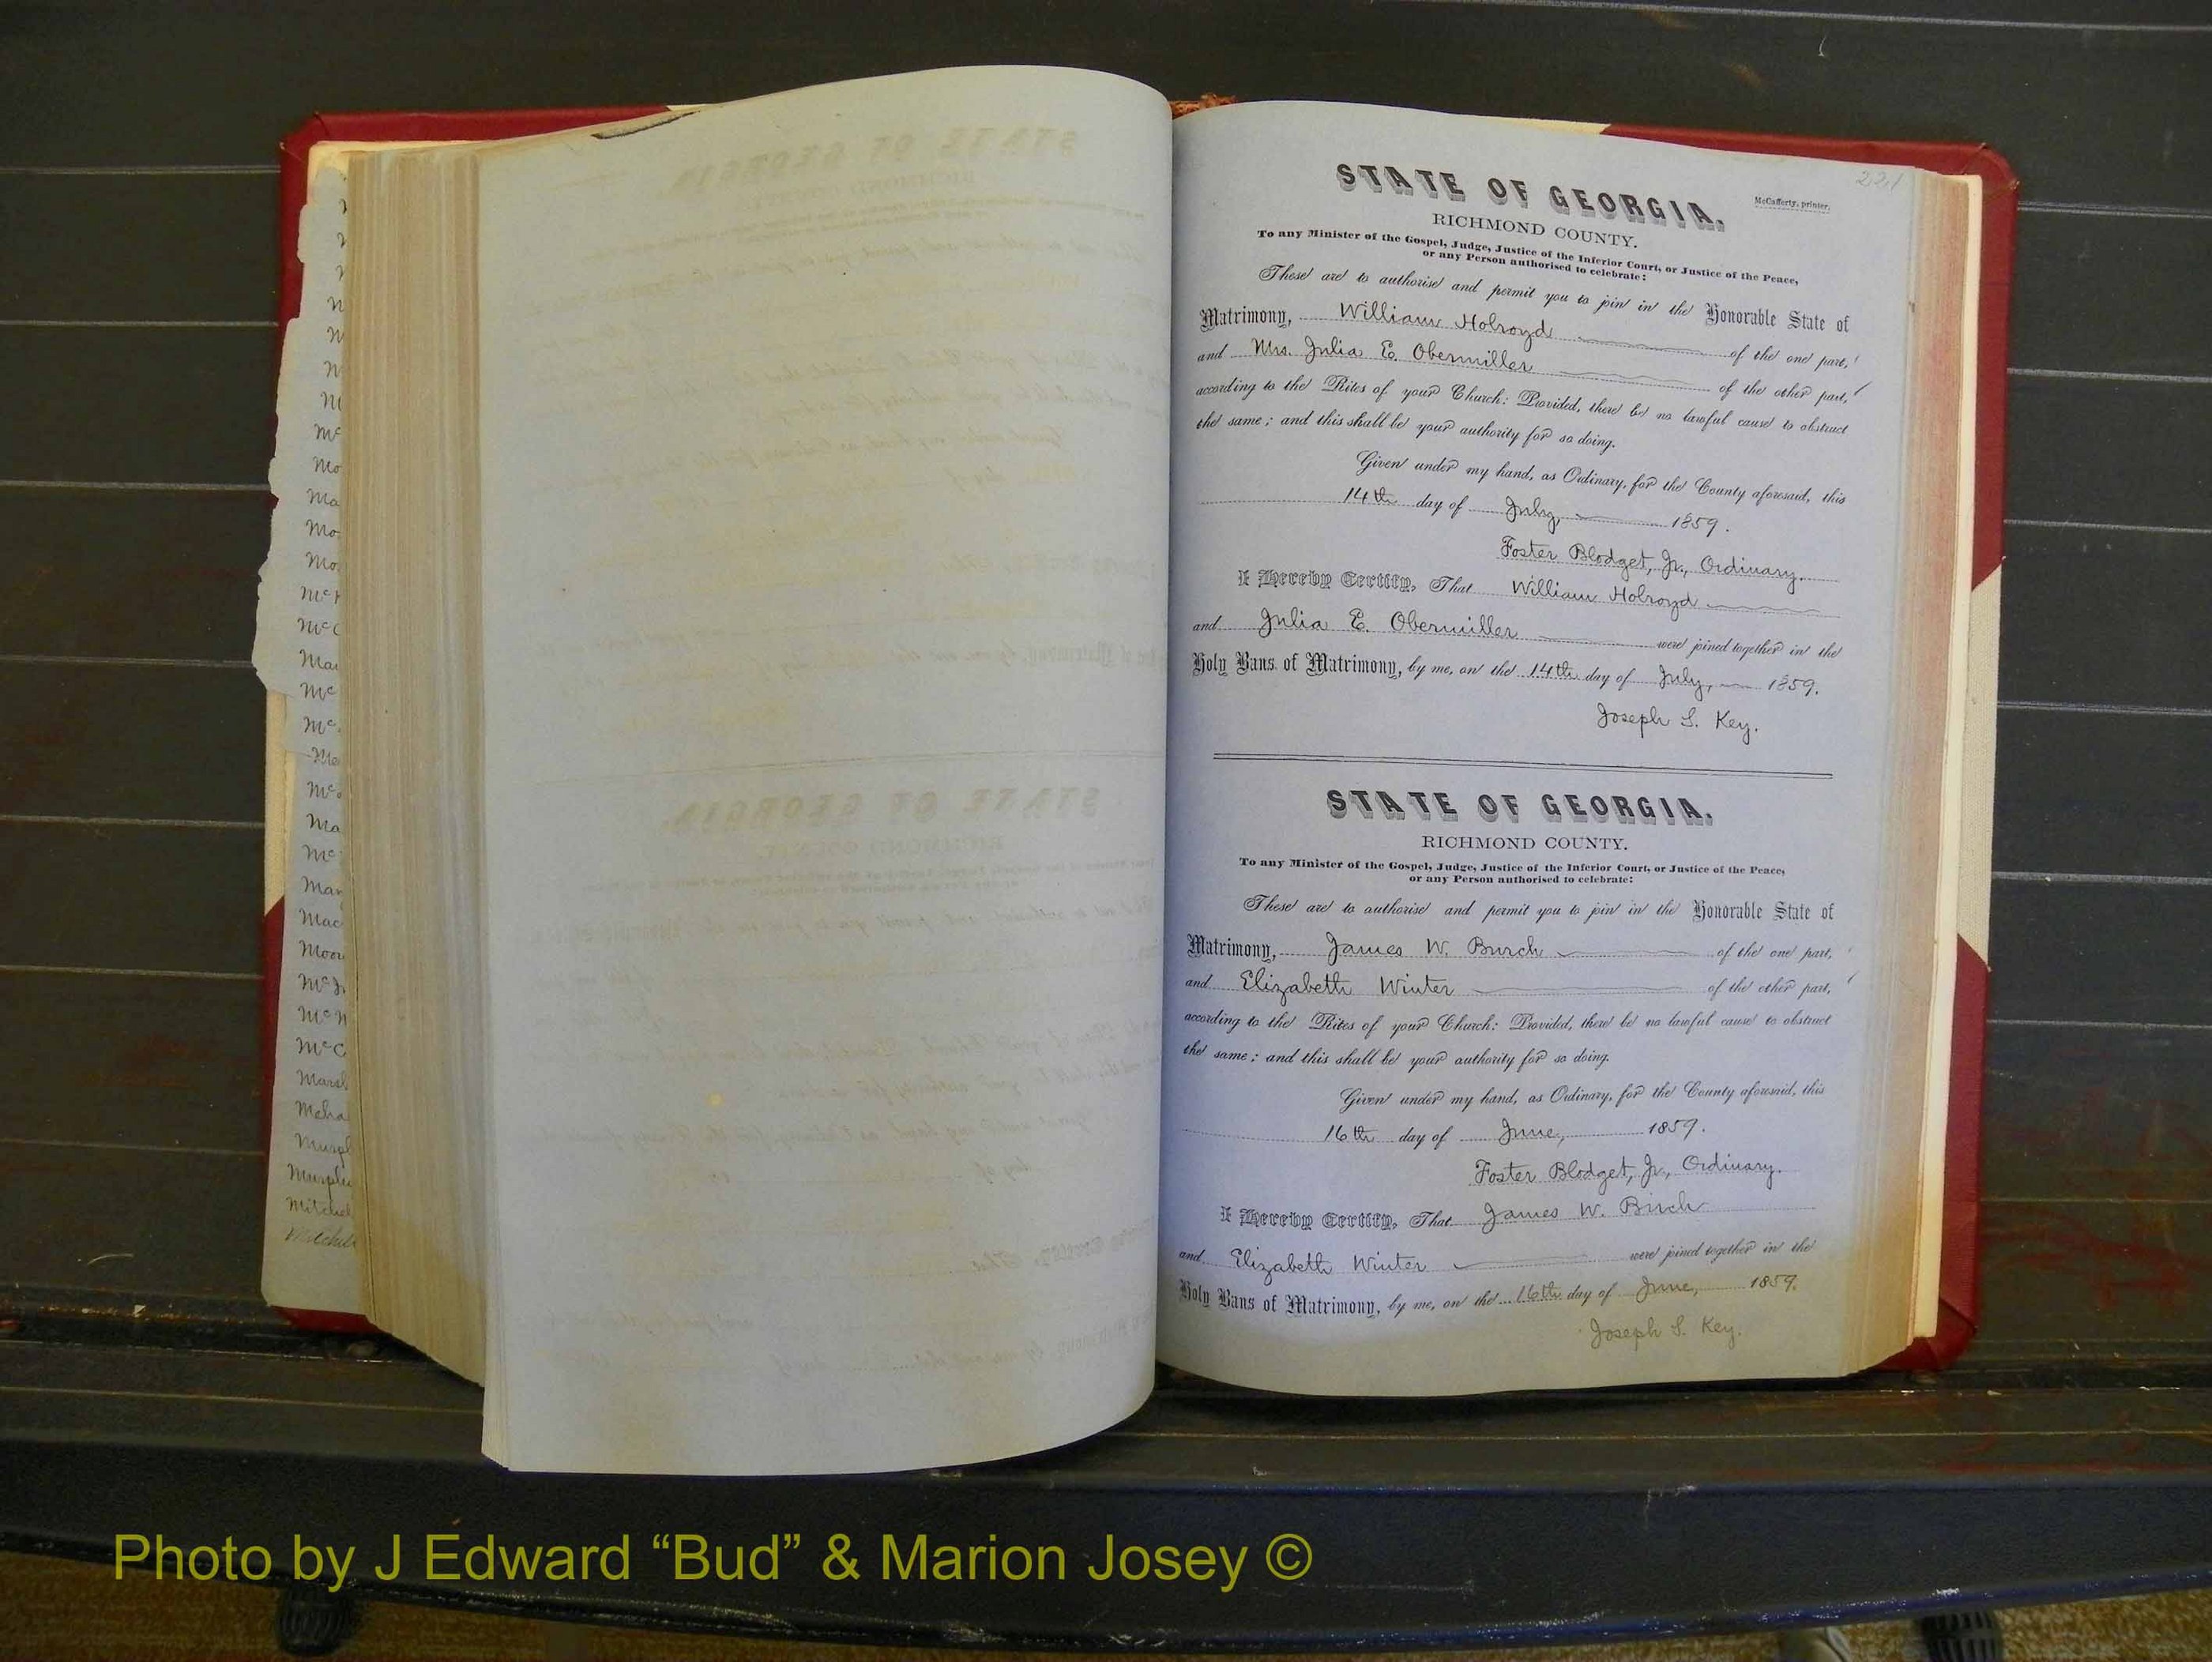 221
STATE OF GEORGIA,
McCafferty, printer.
RICHMOND COUNTY.
To any Minister of the Gospel, Judge, Justice of the Inferior Court, or Justice of the Peace,
or any Person authorised to celebrate:
These are to authorise and permit you to join in the Honorable State of
Matrimony, William Holroyd of the one part,
and Mrs. Julia E. Obermiller of the other part,
according to the Rites of your Church: Provided, there be no lawful cause to obstruct
the same; and this shall be your authority for so doing.
Given under my hand, as Ordinary, for the County aforesaid, this
14th day of July, 1859.
Foster Blodget, Jr., Ordinary.
I Hereby Certify, That William Holroyd
and Julia E. Obermiller were joined together in the
Holy Bans of Matrimony, by me, on the 14th day of July, 1859.
Joseph S. Key.
STATE OF GEORGIA,
RICHMOND COUNTY.
To any Minister of the Gospel, Judge, Justice of the Inferior Court, or Justice of the Peace,
or any Person authorised to celebrate:
These are to authorise and permit you to join in the Honorable State of
Matrimony, James W. Burch of the one part,
and Elizabeth Winter of the other part,
according to the Rites of your Church: Provided, there be no lawful cause to obstruct
the same; and this shall be your authority for so doing.
Given under my hand, as Ordinary, for the County aforesaid, this
16th day of June, 1859.
Foster Blodget, Jr., Ordinary.
I Hereby Certify, That James W. Birch
and Elizabeth Winter were joined together in the
Holy Bans of Matrimony, by me, on the 16th day of June, 1859.
Joseph S. Key.
Photo by J Edward “Bud” & Marion Josey ©